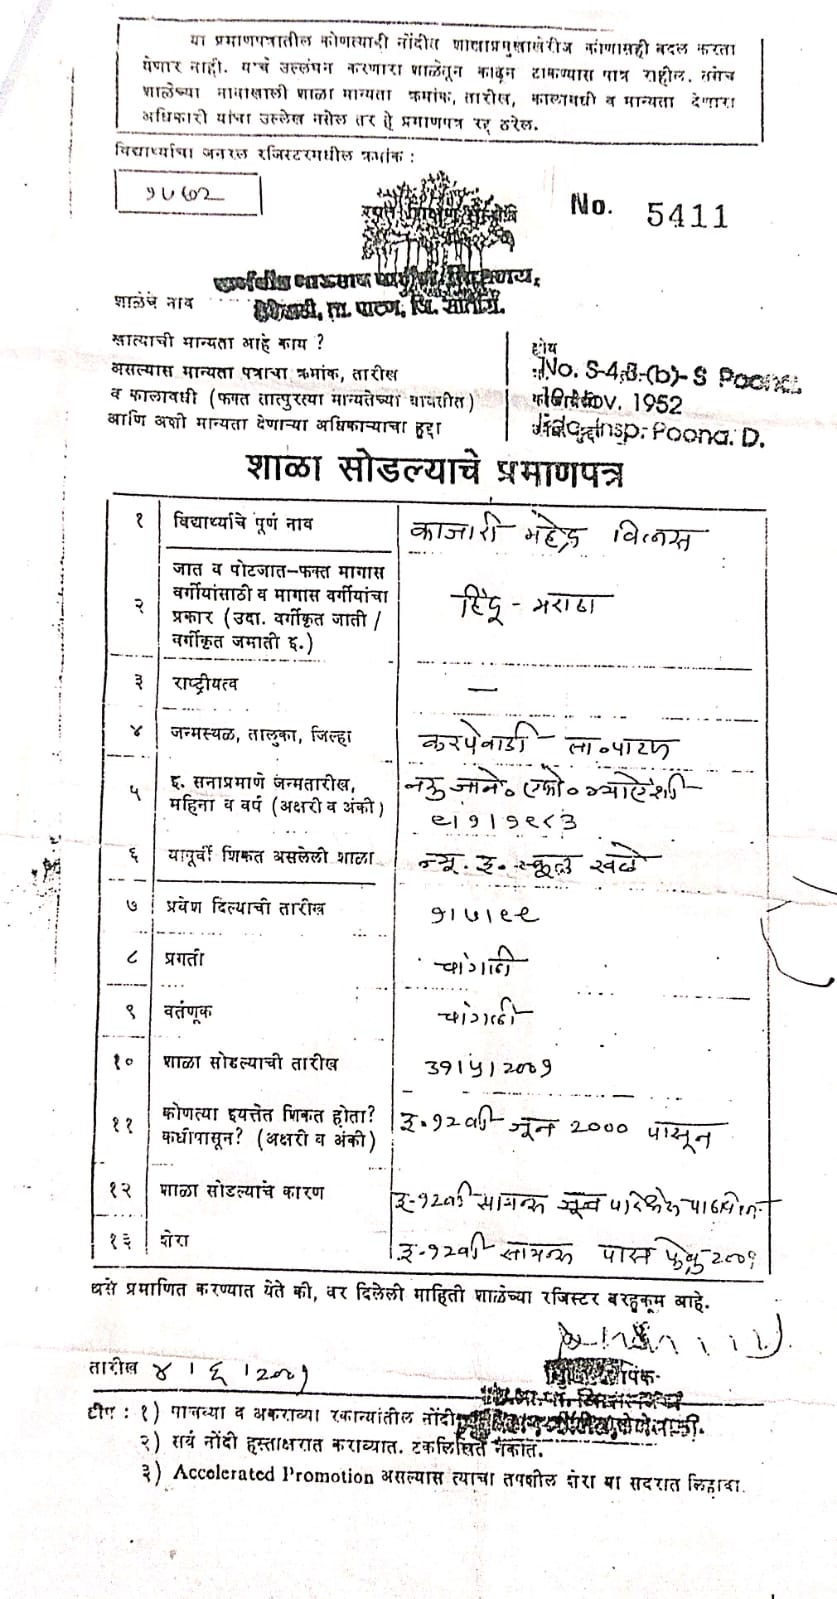 या प्रमाणपत्रातील कोणत्याही नोंदीत शाळाप्रमुखाखेरीज कोणासही बदल करता
येणार नाही. याचे उल्लंघन करणारा शाळेतून काढून टाकण्यास पात्र राहील. तसेच
शाळेच्या नावाखाली शाळा मान्यता क्रमांक, तारीख, कालावधी व मान्यता देणारा
अधिकारी यांचा उल्लेख नसेल तर हे प्रमाणपत्र रद्द ठरेल.
विद्यार्थ्याचा जनरल रजिस्टरमधील क्रमांक :
No. 5411
शाळेचे नाव
ता. पाटण, जि. सातारा.
खात्याची मान्यता आहे काय ? होय
असल्यास मान्यता पत्राचा क्रमांक, तारीख No. S-43-(b)-S Poona
व कालावधी (फक्त तात्पुरत्या मान्यतेच्या बाबतीत) Nov. 1952
आणि अशी मान्यता देणाऱ्या अधिकाऱ्याचा हुद्दा Insp. Poona. D.
शाळा सोडल्याचे प्रमाणपत्र
१ विद्यार्थ्याचे पूर्ण नाव काजारी महेंद्र विलास
२ जात व पोटजात-फक्त मागास
वर्गीयांसाठी व मागास वर्गीयांचा
प्रकार (उदा. वर्गीकृत जाती /
वर्गीकृत जमाती इ.) हिंदू - मराठा
३ राष्ट्रीयत्व —
४ जन्मस्थळ, तालुका, जिल्हा करपेवाडी ता० पाटण
५ इ. सनाप्रमाणे जन्मतारीख,
महिना व वर्ष (अक्षरी व अंकी) नऊ जाने० एको० त्र्याऐंशी
९।१।१९८३
६ यापूर्वी शिकत असलेली शाळा न्यू. इ. स्कूल खळे
७ प्रवेश दिल्याची तारीख १।७।९९
८ प्रगती चांगली
९ वर्तणूक चांगली
१० शाळा सोडल्याची तारीख ३१।५।२००१
११ कोणत्या इयत्तेत शिकत होता?
कधीपासून? (अक्षरी व अंकी) इ. १२वी जून २००० पासून
१२ शाळा सोडल्याचे कारण इ-१२वी सायन्स
१३ शेरा इ-१२वी सायन्स पास फेब्रु २००१
असे प्रमाणित करण्यात येते की, वर दिलेली माहिती शाळेच्या रजिस्टर बरहुकूम आहे.
तारीख ४ । ६ । २००१
टीप : १) पाचव्या व अकराव्या रकान्यांतील नोंदी
२) सर्व नोंदी हस्ताक्षरात कराव्यात. टंकलिखित नकोत.
३) Accelerated Promotion असल्यास त्याचा तपशील शेरा या सदरात लिहावा.